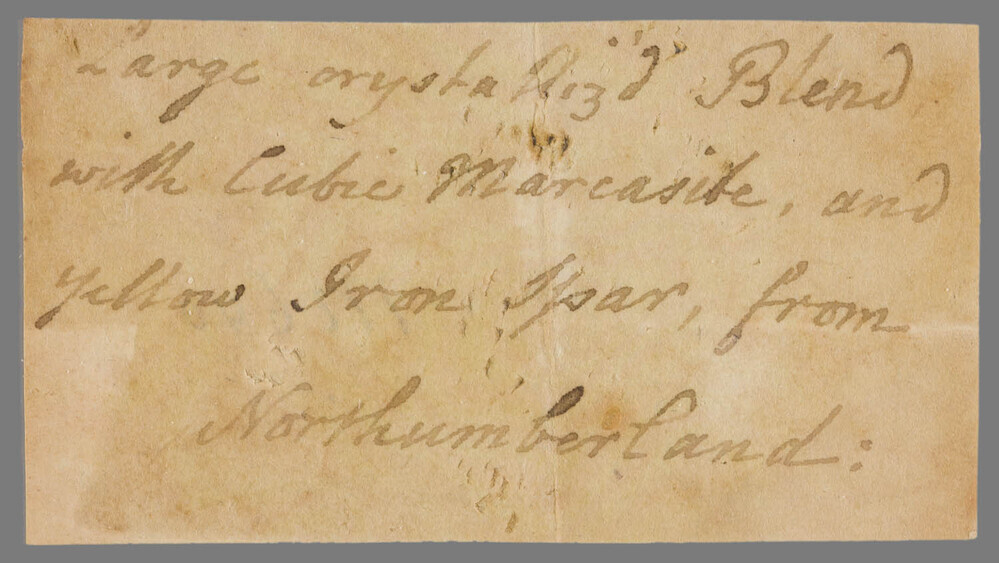 Large crystalliz'd Blend
with Cubic Marcasite, and
yellow Iron Spar, from
Northumberland: